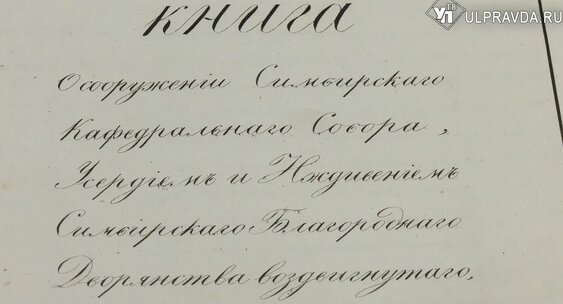 ТВ
УП ULPRAVDA.RU
книга
О сооруженіи Симбирскаго
Кафедральнаго Собора,
Усердіемъ и Иждивеніемъ
Симбирскаго Благороднаго
Дворянства воздвигнутаго,